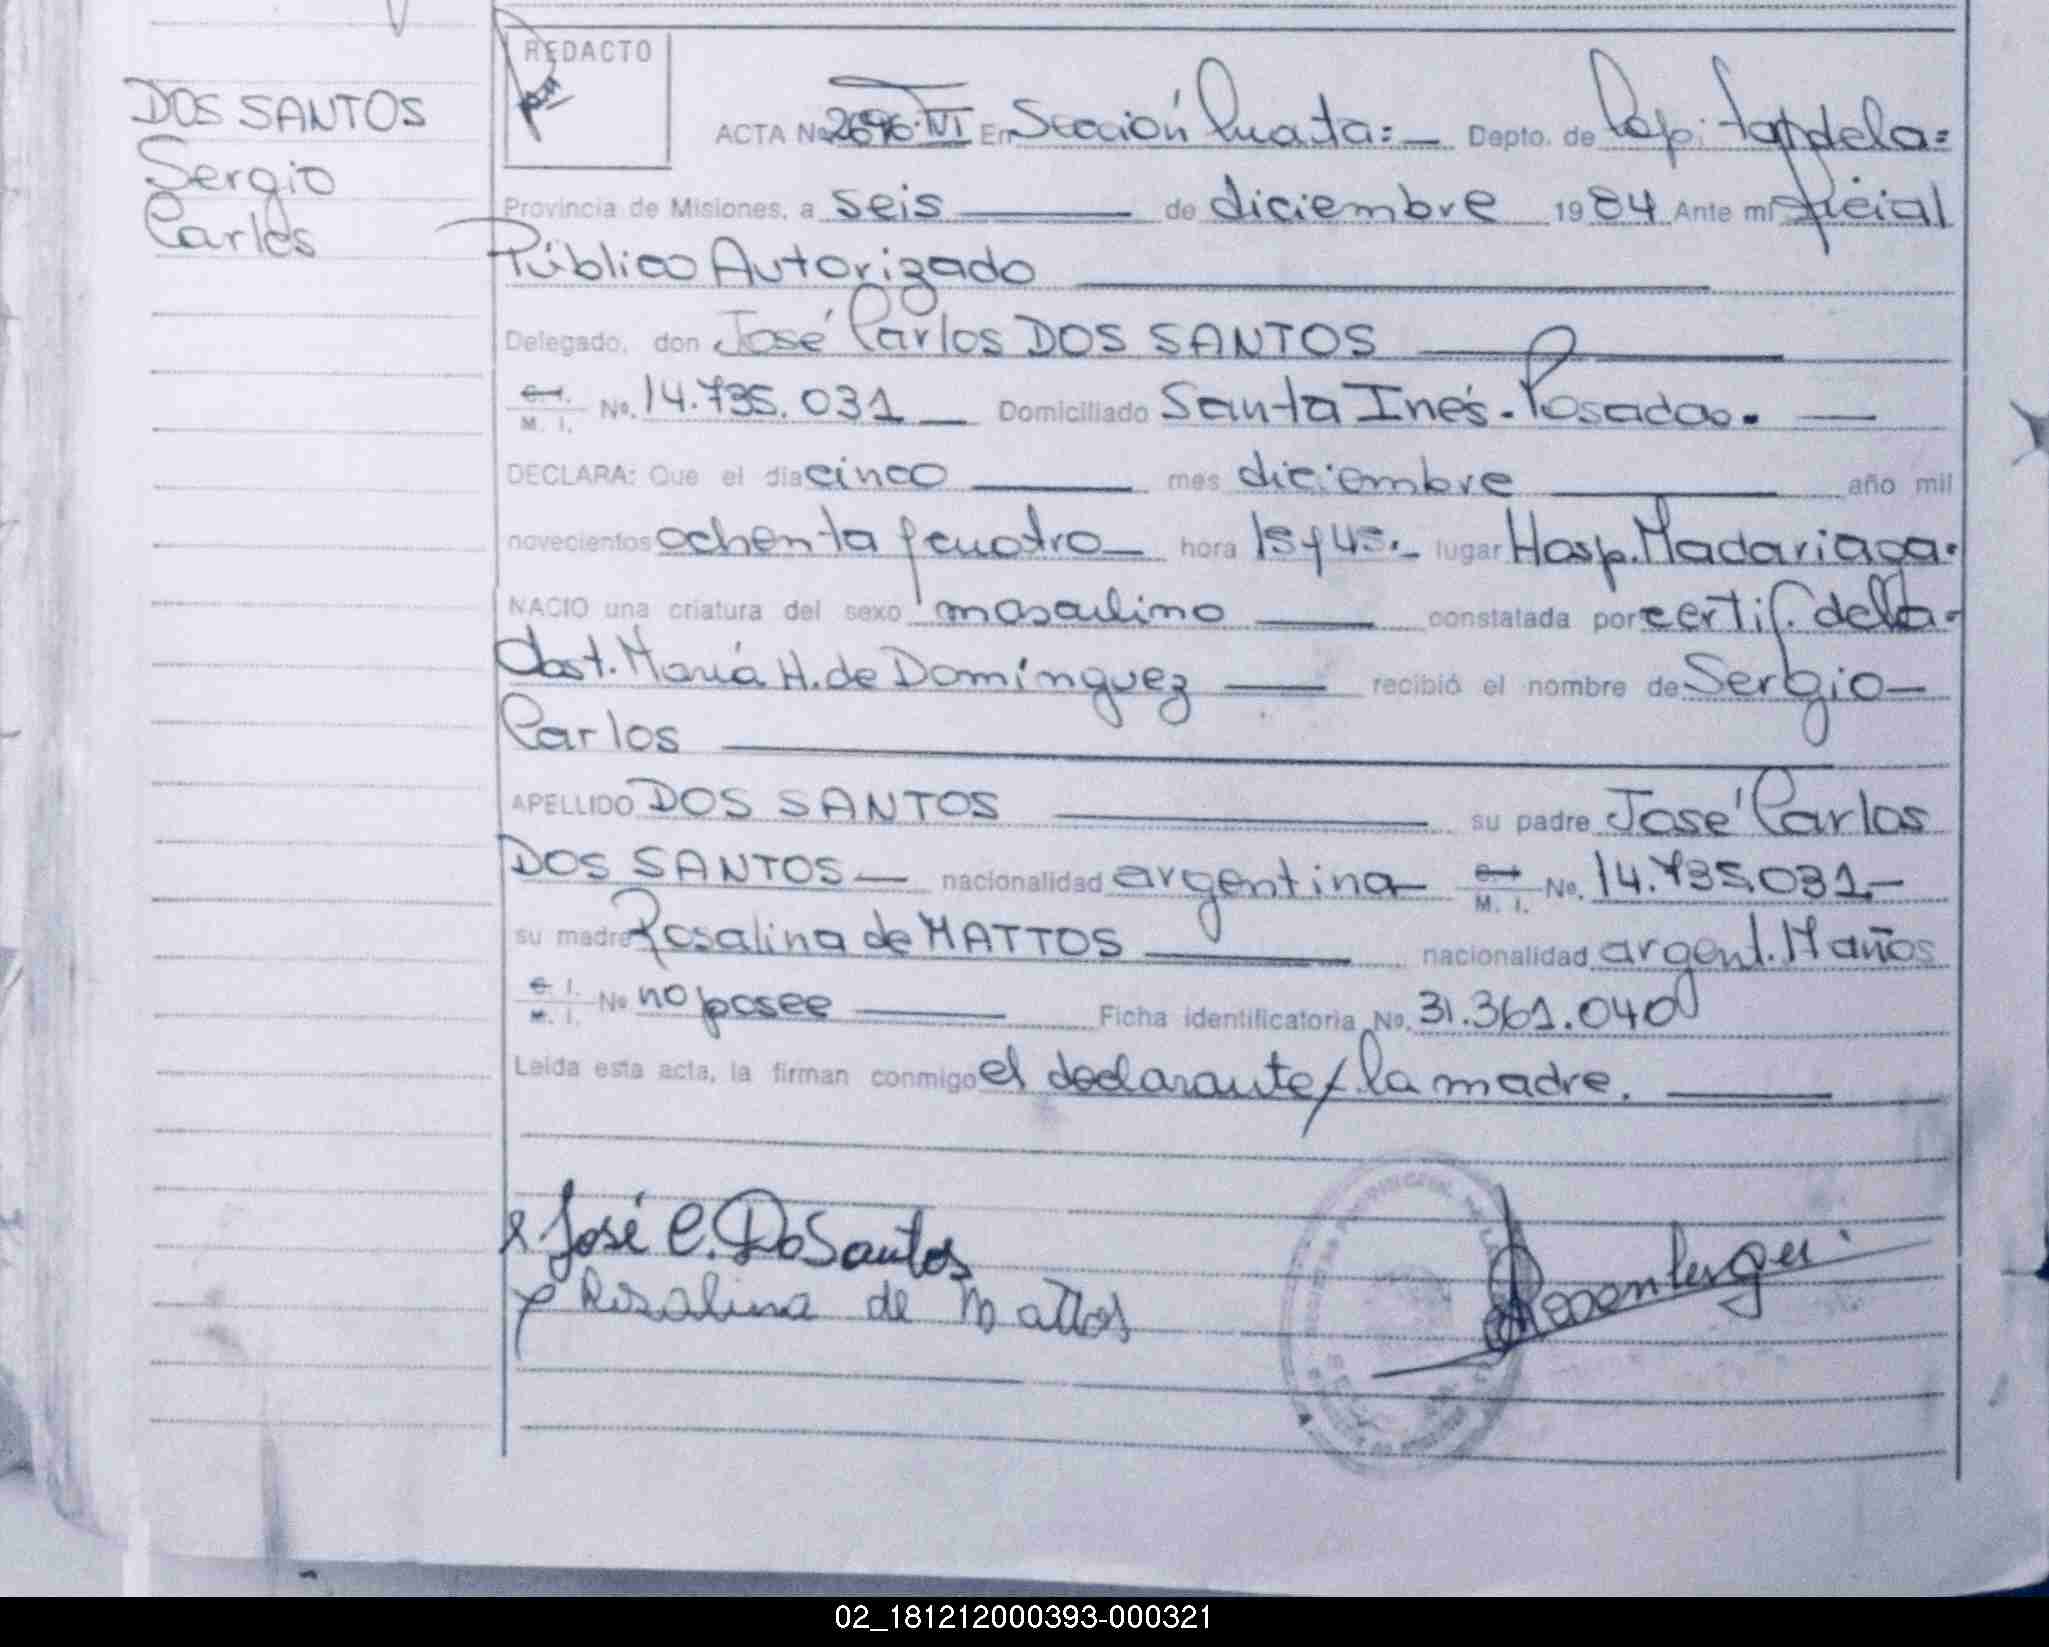 DOS SANTOS
Sergio
Carlos
REDACTO
ACTA No 2696.TVI En Sección Cuarta:— Depto. de Capital de la=
Provincia de Misiones, a seis de diciembre 1984 Ante mi Oficial
Público Autorizado
Delegado, don José Carlos DOS SANTOS
C. I. M. I. No. 14.735.031 Domiciliado Santa Inés. Posadas.
DECLARA: Que el dia cinco mes diciembre año mil
novecientos ochenta y cuatro hora 15 y 45.- lugar Hosp. Madariaga.
NACIO una criatura del sexo masculino constatada por certif. de la-
Obst. María H. de Domínguez recibió el nombre de Sergio
Carlos
APELLIDO DOS SANTOS su padre José Carlos
DOS SANTOS nacionalidad argentina C. I. M. I. No. 14.735.031
su madre Rosalina de MATTOS nacionalidad argent. 17 años
C. I. M. I. No no posee Ficha identificatoria No. 31.361.040
Leida esta acta, la firman conmigo el declarante y la madre.
x José C. Do Santos
x Rosalina de Mattos
02_181212000393-000321